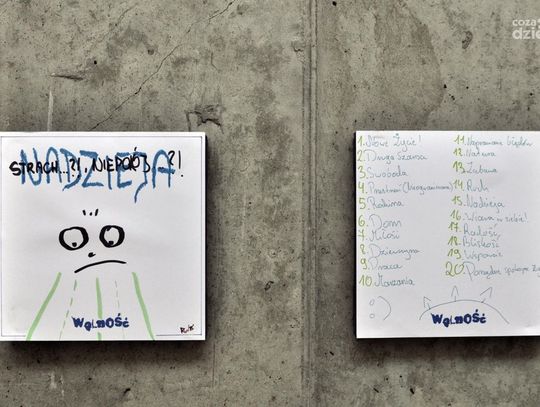 coza
dzień
NADZIEJA
STRACH...?!, NIEPOKÓJ ?!
WOLNOŚĆ
1. Nowe Życie!
2. Druga Szansa
3. Swoboda
4. Przestrzeń (Nieograniczona)
5. Rodzina
6. Dom
7. Miłość
8. Dziewczyna
9. Praca
10. Marzenia
11. Naprawienie błędów
12. Natura
13. Zabawa
14. Ruch
15. Nadzieja
16. Wiara w siebie!
17. Radość
18. Bliskość
19. Wsparcie
20. Porządne spokojne
:)
WOLNOŚĆ